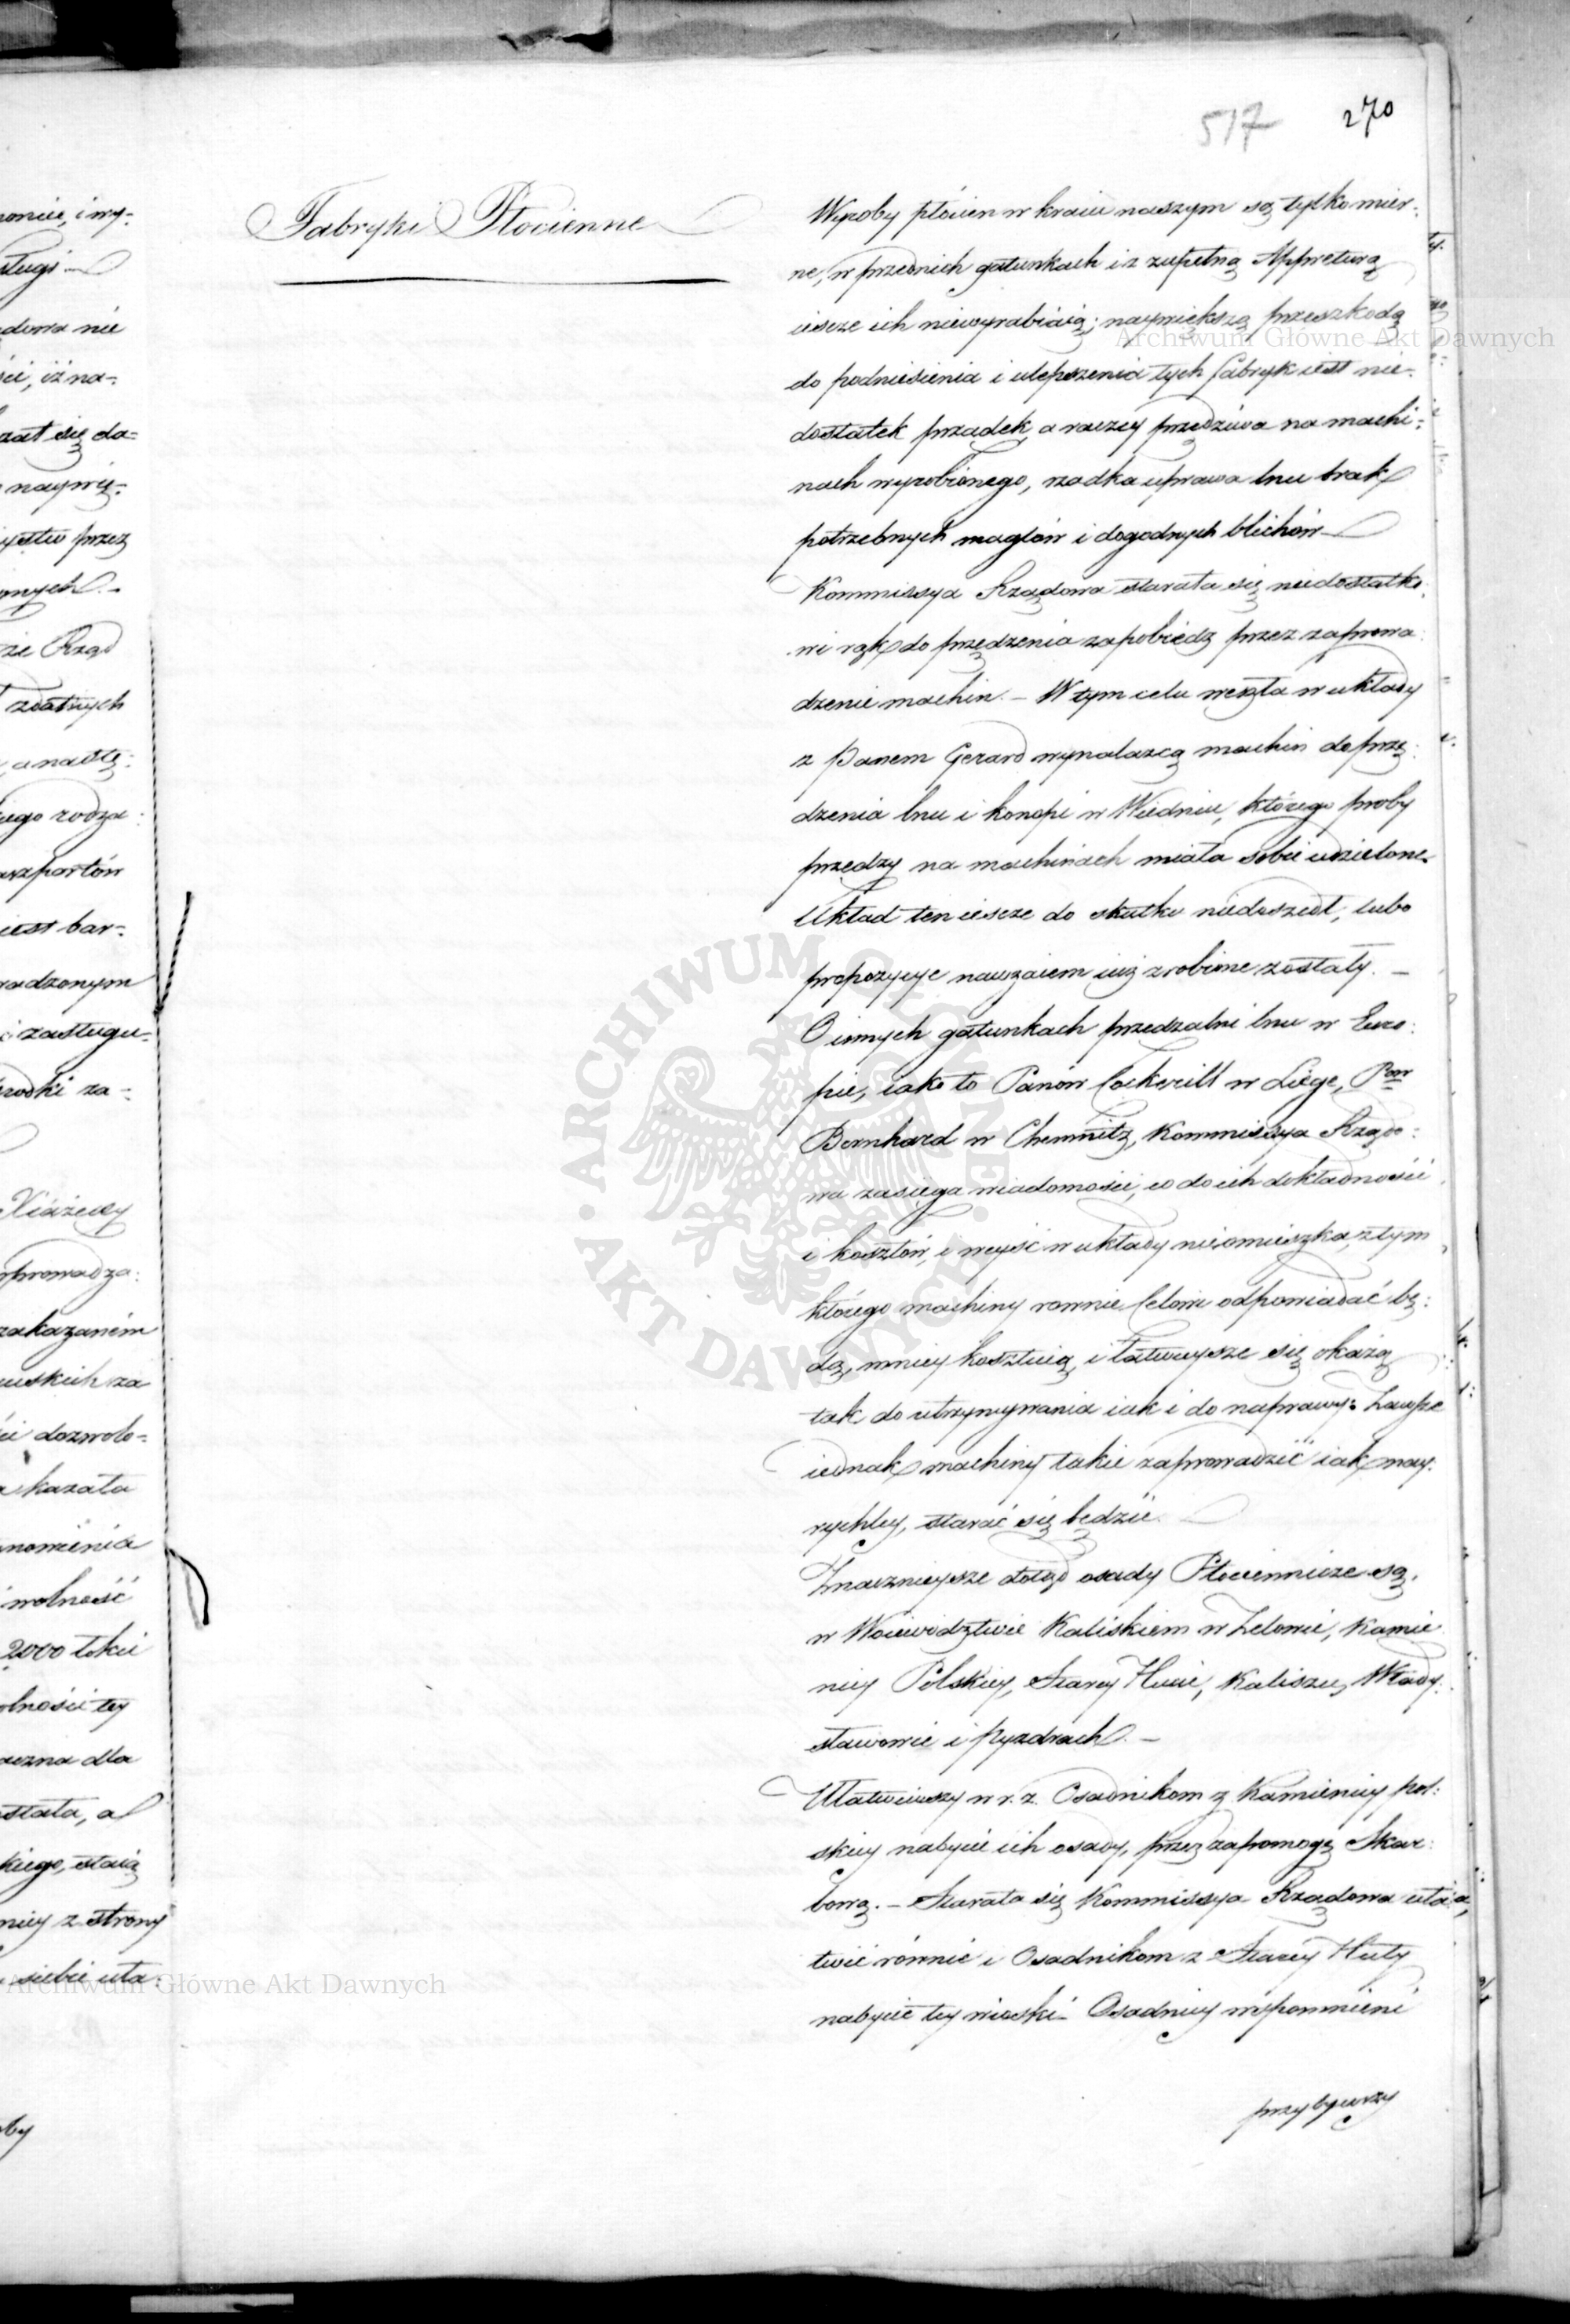 517 270
Fabryki Płocienne
Wyroby płócien w kraiu naszym są tylko mier-
ne, w przednich gatunkach i z zupełną Appreturą
iescze ich niewyrabiaią; naywiększą przeszkodą
do podniesienia i ulepszenia tych fabryk iest nie-
dostatek prządek, a raczey przędziwa na machi-
nach wyrobionego, rzadka uprawa lnu brak
potrzebnych maglów i dogodnych blichów
Kommissya Rządowa starała się niedostatko-
wi rąk do przędzenia zapobiedz przez zaprowa-
dzenie machin. – W tym celu weszła w układy
z Panem Gerard wynalazcą machin do przę-
dzenia lnu i konopi w Wiedniu, którego proby
przędzy na machinach miała sobie udzielone.
Układ ten iescze do skutku niedoszedł, lubo
propozycye nawzaiem iuż zrobione zostały. –
O innych gatunkach przedzalni lnu w Euro-
pie, iako to Panów Cockerill w Liége, Pow
Bernhard w Chemnitz, Kommissya Rządo-
wa zasięga wiadomości, co do ich dokładności
i kosztów, i weyść w układy nieomieszka, z tym
którego machiny rownie Celowi odpowiadać bę-
dą, mniey kosztuią, i łatwieysze się okażą
tak do utrzymywania iak i do naprawy. Zawsze
iednak machiny takie zaprowadzić iak nay-
rychley, starać się będzie.
Znacznieysze dotąd osady Płociennicze są,
w Woiewództwie Kaliskiem w Zelowie, Kamie
nicy Polskiey, Starey Hucie, Kaliszu, Włady-
sławowie i Pyzdrach. –
Ułatwiwszy w r. z. Osadnikom z Kamienicy pol-
skiey nabycie ich osady, przez zapomogę Skar-
bową. – Starała się Kommissya Rządowa uła-
twić równie i Osadnikom z Starey Huty
nabycie tey wioski – Osadnicy wspomnieni
przybywszy
oniie, i wy-
sługi
dowa nie
ści, iż na-
zał się do-
naywię-
ystw przez
nych. –
że Rząd
zdatnych
a nastę-
iego rodza-
aszportów
iest bar-
adzonym
i zasługu-
rodki za-
Xiążęcey
prowadza-
zakazaném
uskich za
ści dozwolo-
kazała
nowienia
wolność
2000 łokci
olności tey
aczna dla
stała, a
kiego, staią
niey z strony
siebie uła-
by
Archiwum Główne Akt Dawnych
ARCHIWUM GŁÓWNE · AKT DAWNYCH ·
Archiwum Główne Akt Dawnych